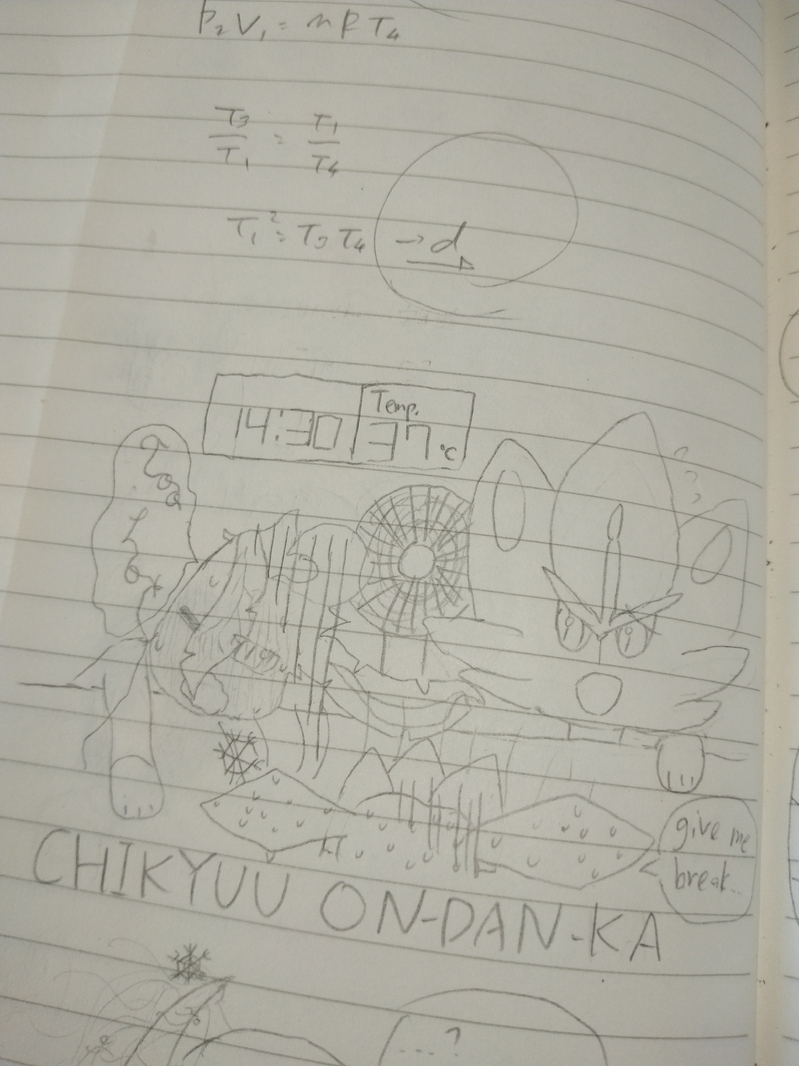 P₂V₁ = nRT₄
T₃/T₁ = T₁/T₄
T₁² = T₃T₄ → d
14:30
Temp.
37°C
Too
Hot
give me
break...
CHIKYUU ON-DAN-KA
...?